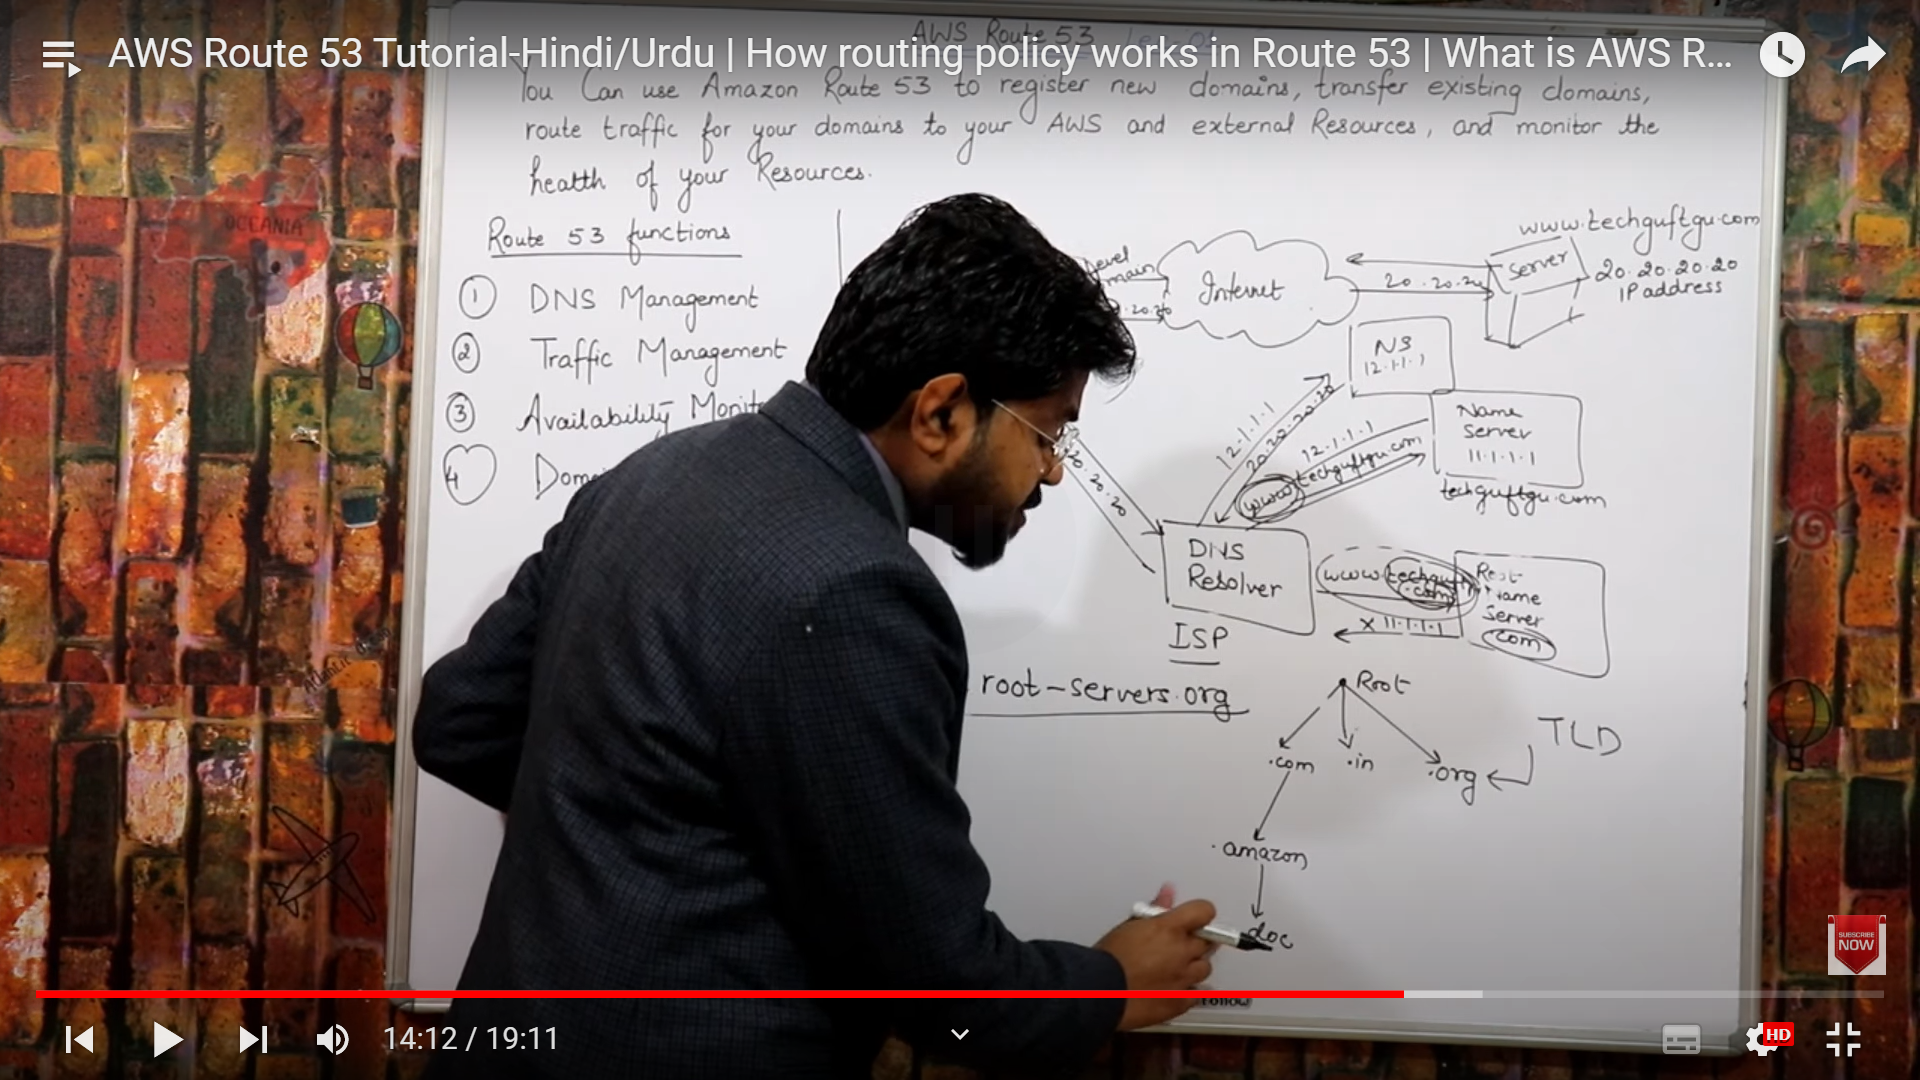 AWS Route 53 Tutorial-Hindi/Urdu | How routing policy works in Route 53 | What is AWS R...
AWS Route 53
You Can use Amazon Route 53 to register new domains, transfer existing domains,
route traffic for your domains to your AWS and external Resources, and monitor the
health of your Resources.
Route 53 functions
1 DNS Management
2 Traffic Management
3 Availability
4
OCEANIA
Internet
20.20.20
Server
www.techguftgu.com
20.20.20.20
IP address
NS
12.1.1.1
Name
Server
11.1.1.1
techguftgu.com
12.1.1.1
20.20.20.20
12.1.1.1
www.techguftgu.com
20.20.20
DNS
Resolver
ISP
www.techguftgu
.com
X 11.1.1.1
Root
Name
Server
com
root-servers.org
Root
.com .in .org
TLD
.amazon
doc
SUBSCRIBE
NOW
follow
14:12 / 19:11
HD